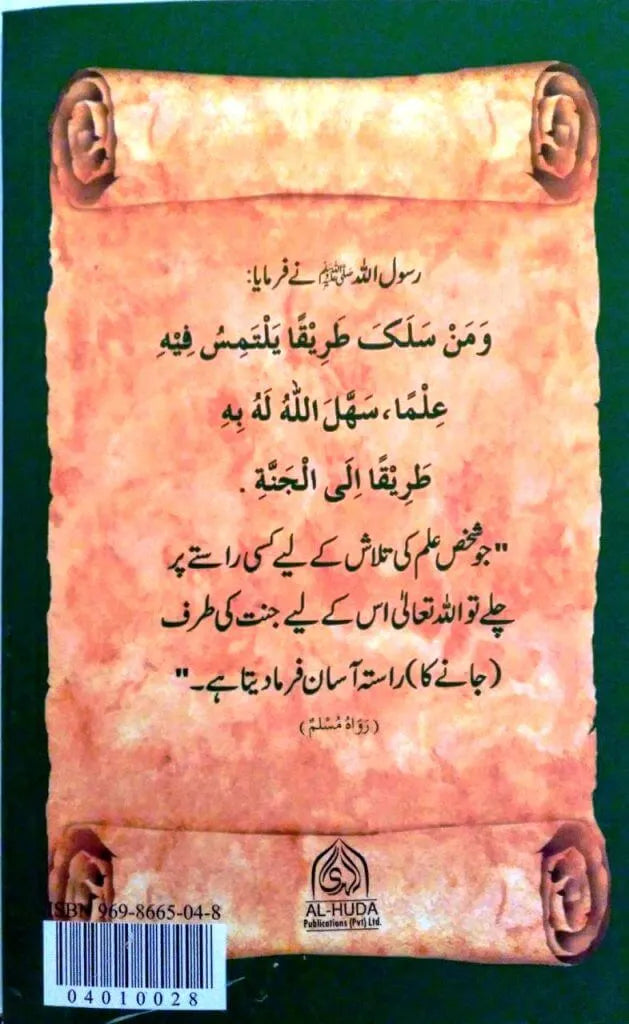 رسول اللہ ﷺ نے فرمایا:
وَمَنْ سَلَکَ طَرِیْقًا یَلْتَمِسُ فِیْهِ
عِلْمًا، سَهَّلَ اللّٰهُ لَهُ بِهِ
طَرِیْقًا اِلَی الْجَنَّةِ .
"جو شخص علم کی تلاش کے لیے کسی راستے پر
چلے تو اللہ تعالیٰ اس کے لیے جنت کی طرف
(جانے کا) راستہ آسان فرما دیتا ہے۔"
(رَوَاهُ مُسْلِمٌ)
الہدی
AL-HUDA
Publications (Pvt) Ltd.
ISBN 969-8665-04-8
04010028